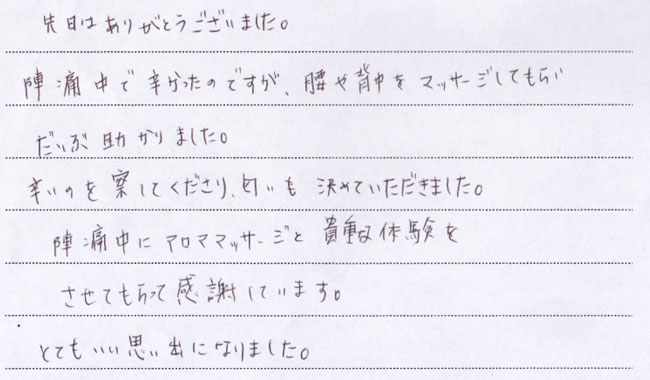 先日はありがとうございました。
陣痛中で辛かったのですが、腰や背中をマッサージしてもらい
だいぶ助かりました。
辛いのを察してくださり、匂いも決めていただきました。
陣痛中にアロママッサージと貴重な体験を
させてもらって感謝しています。
とてもいい思い出になりました。